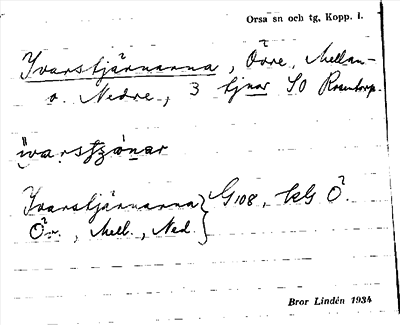 Orsa sn och tg, Kopp. l.
Ivarstjärnarna, Övre, Mellan-
o. Nedre, 3 tjnar SO Rosentorp.
ivarstjọ̈nar
Ivarstjärnarna } G108, kbl Ö.
Öv., Mell., Ned.
Bror Lindén 1934